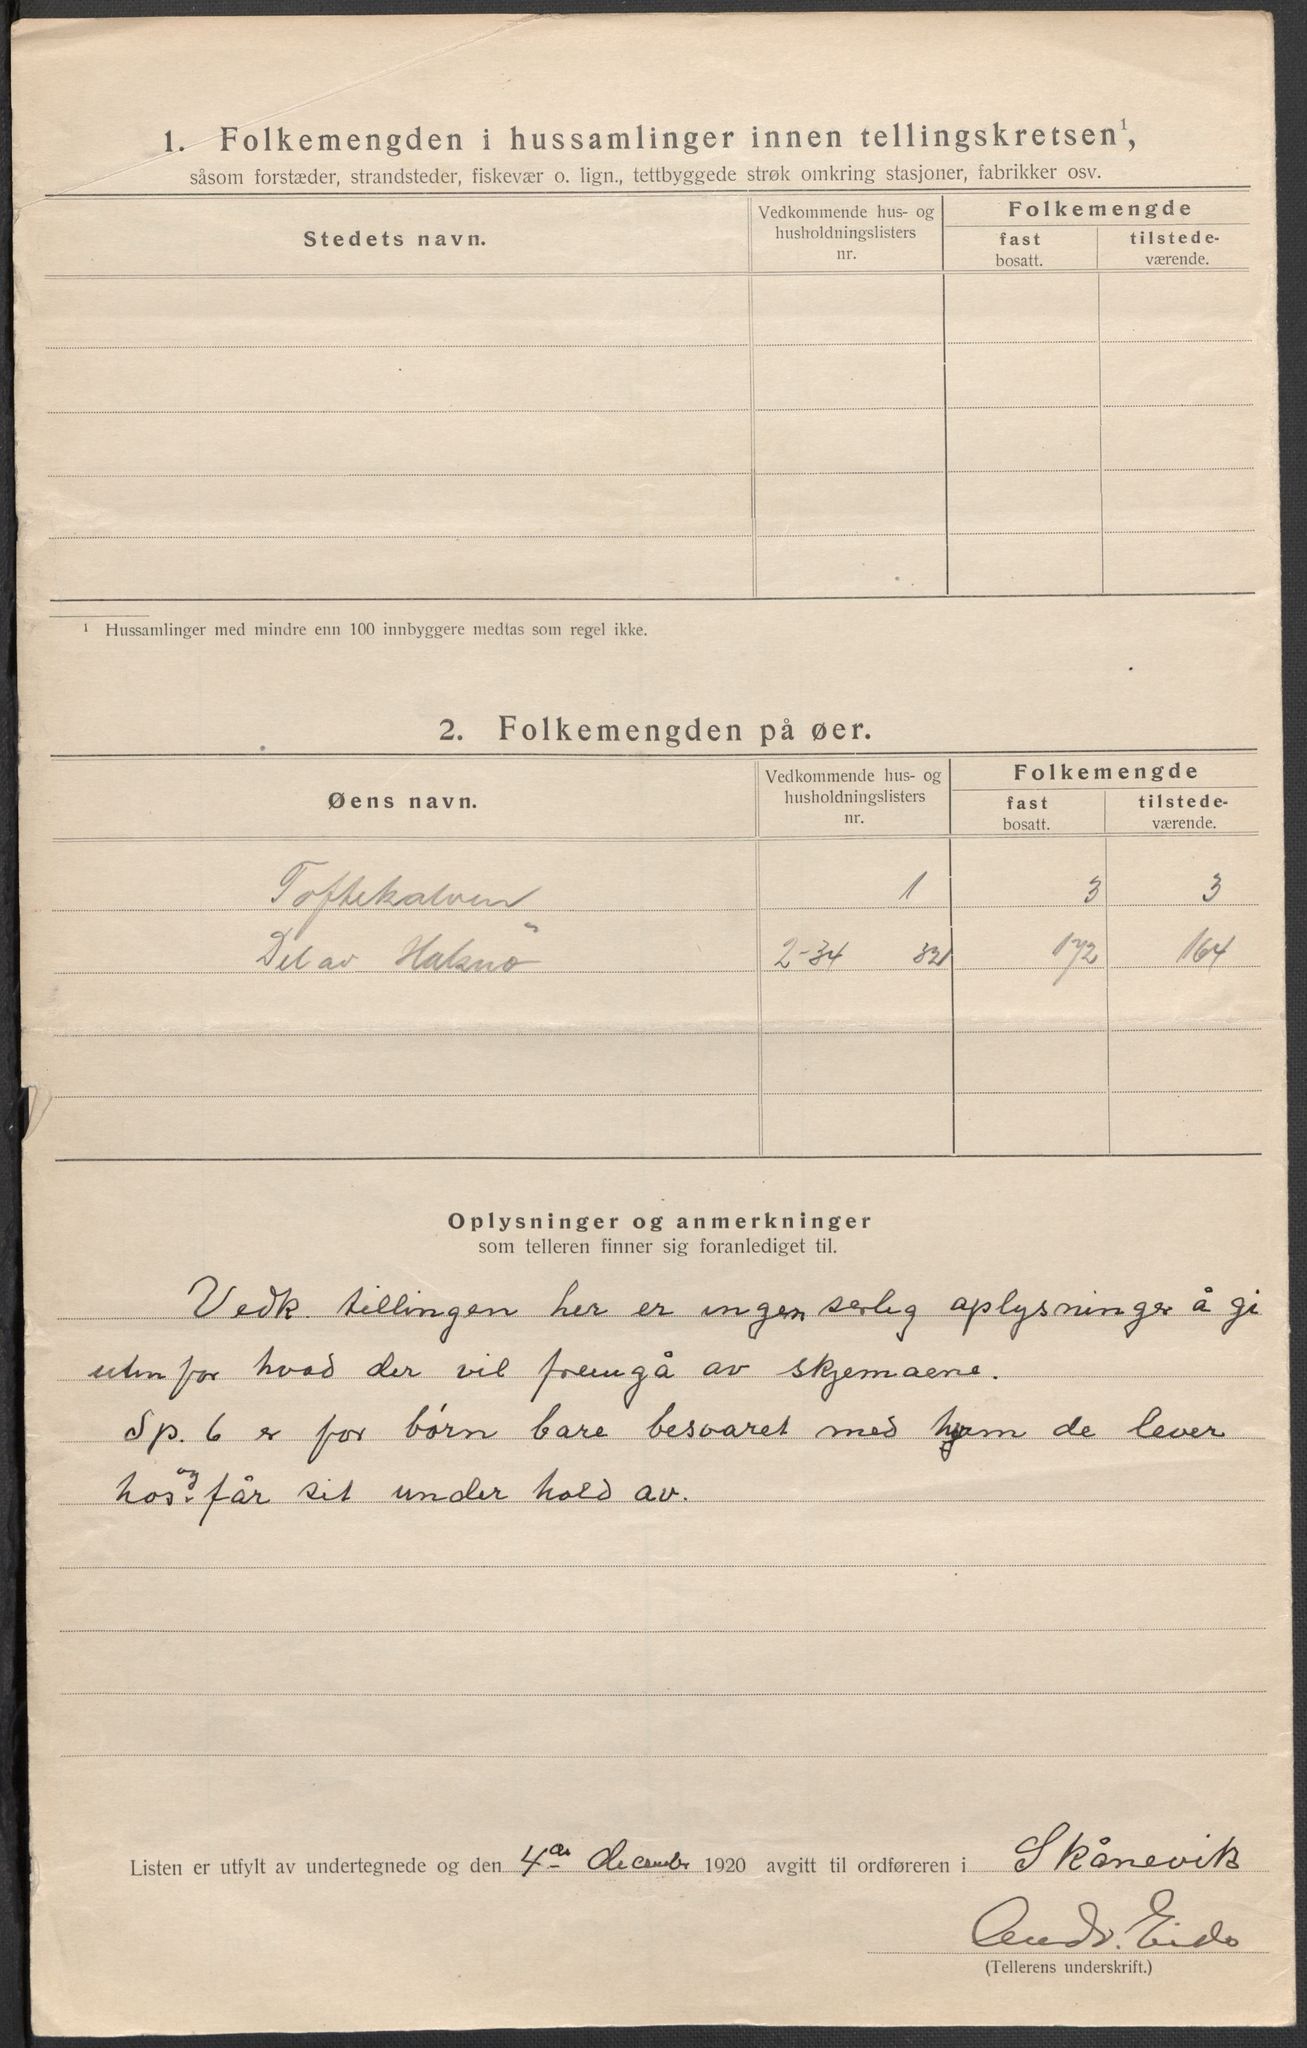 1. Folkemengden i hussamlinger innen tellingskretsen¹,
såsom forstæder, strandsteder, fiskevær o. lign., tettbyggede strøk omkring stasjoner, fabrikker osv.
Stedets navn.
Vedkommende hus- og husholdningslisters nr.
Folkemengde
fast bosatt.
tilstede-værende.
¹ Hussamlinger med mindre enn 100 innbyggere medtas som regel ikke.
2. Folkemengden på øer.
Øens navn.
Vedkommende hus- og husholdningslisters nr.
Folkemengde
fast bosatt.
tilstede-værende.
Toftekalven 1 3 3
Del av Halsnö 2-34 172 164
Oplysninger og anmerkninger
som telleren finner sig foranlediget til.
Vedk. tellingen her er ingen serlig oplysninger å gi
uten for hvad der vil fremgå av skjemaene.
Sp. 6 er for børn bare besvaret med hvem de lever
hos og får sit under hold av.
Listen er utfylt av undertegnede og den 4de december 1920 avgitt til ordføreren i Skånevik
Andr. Eide
(Tellerens underskrift.)